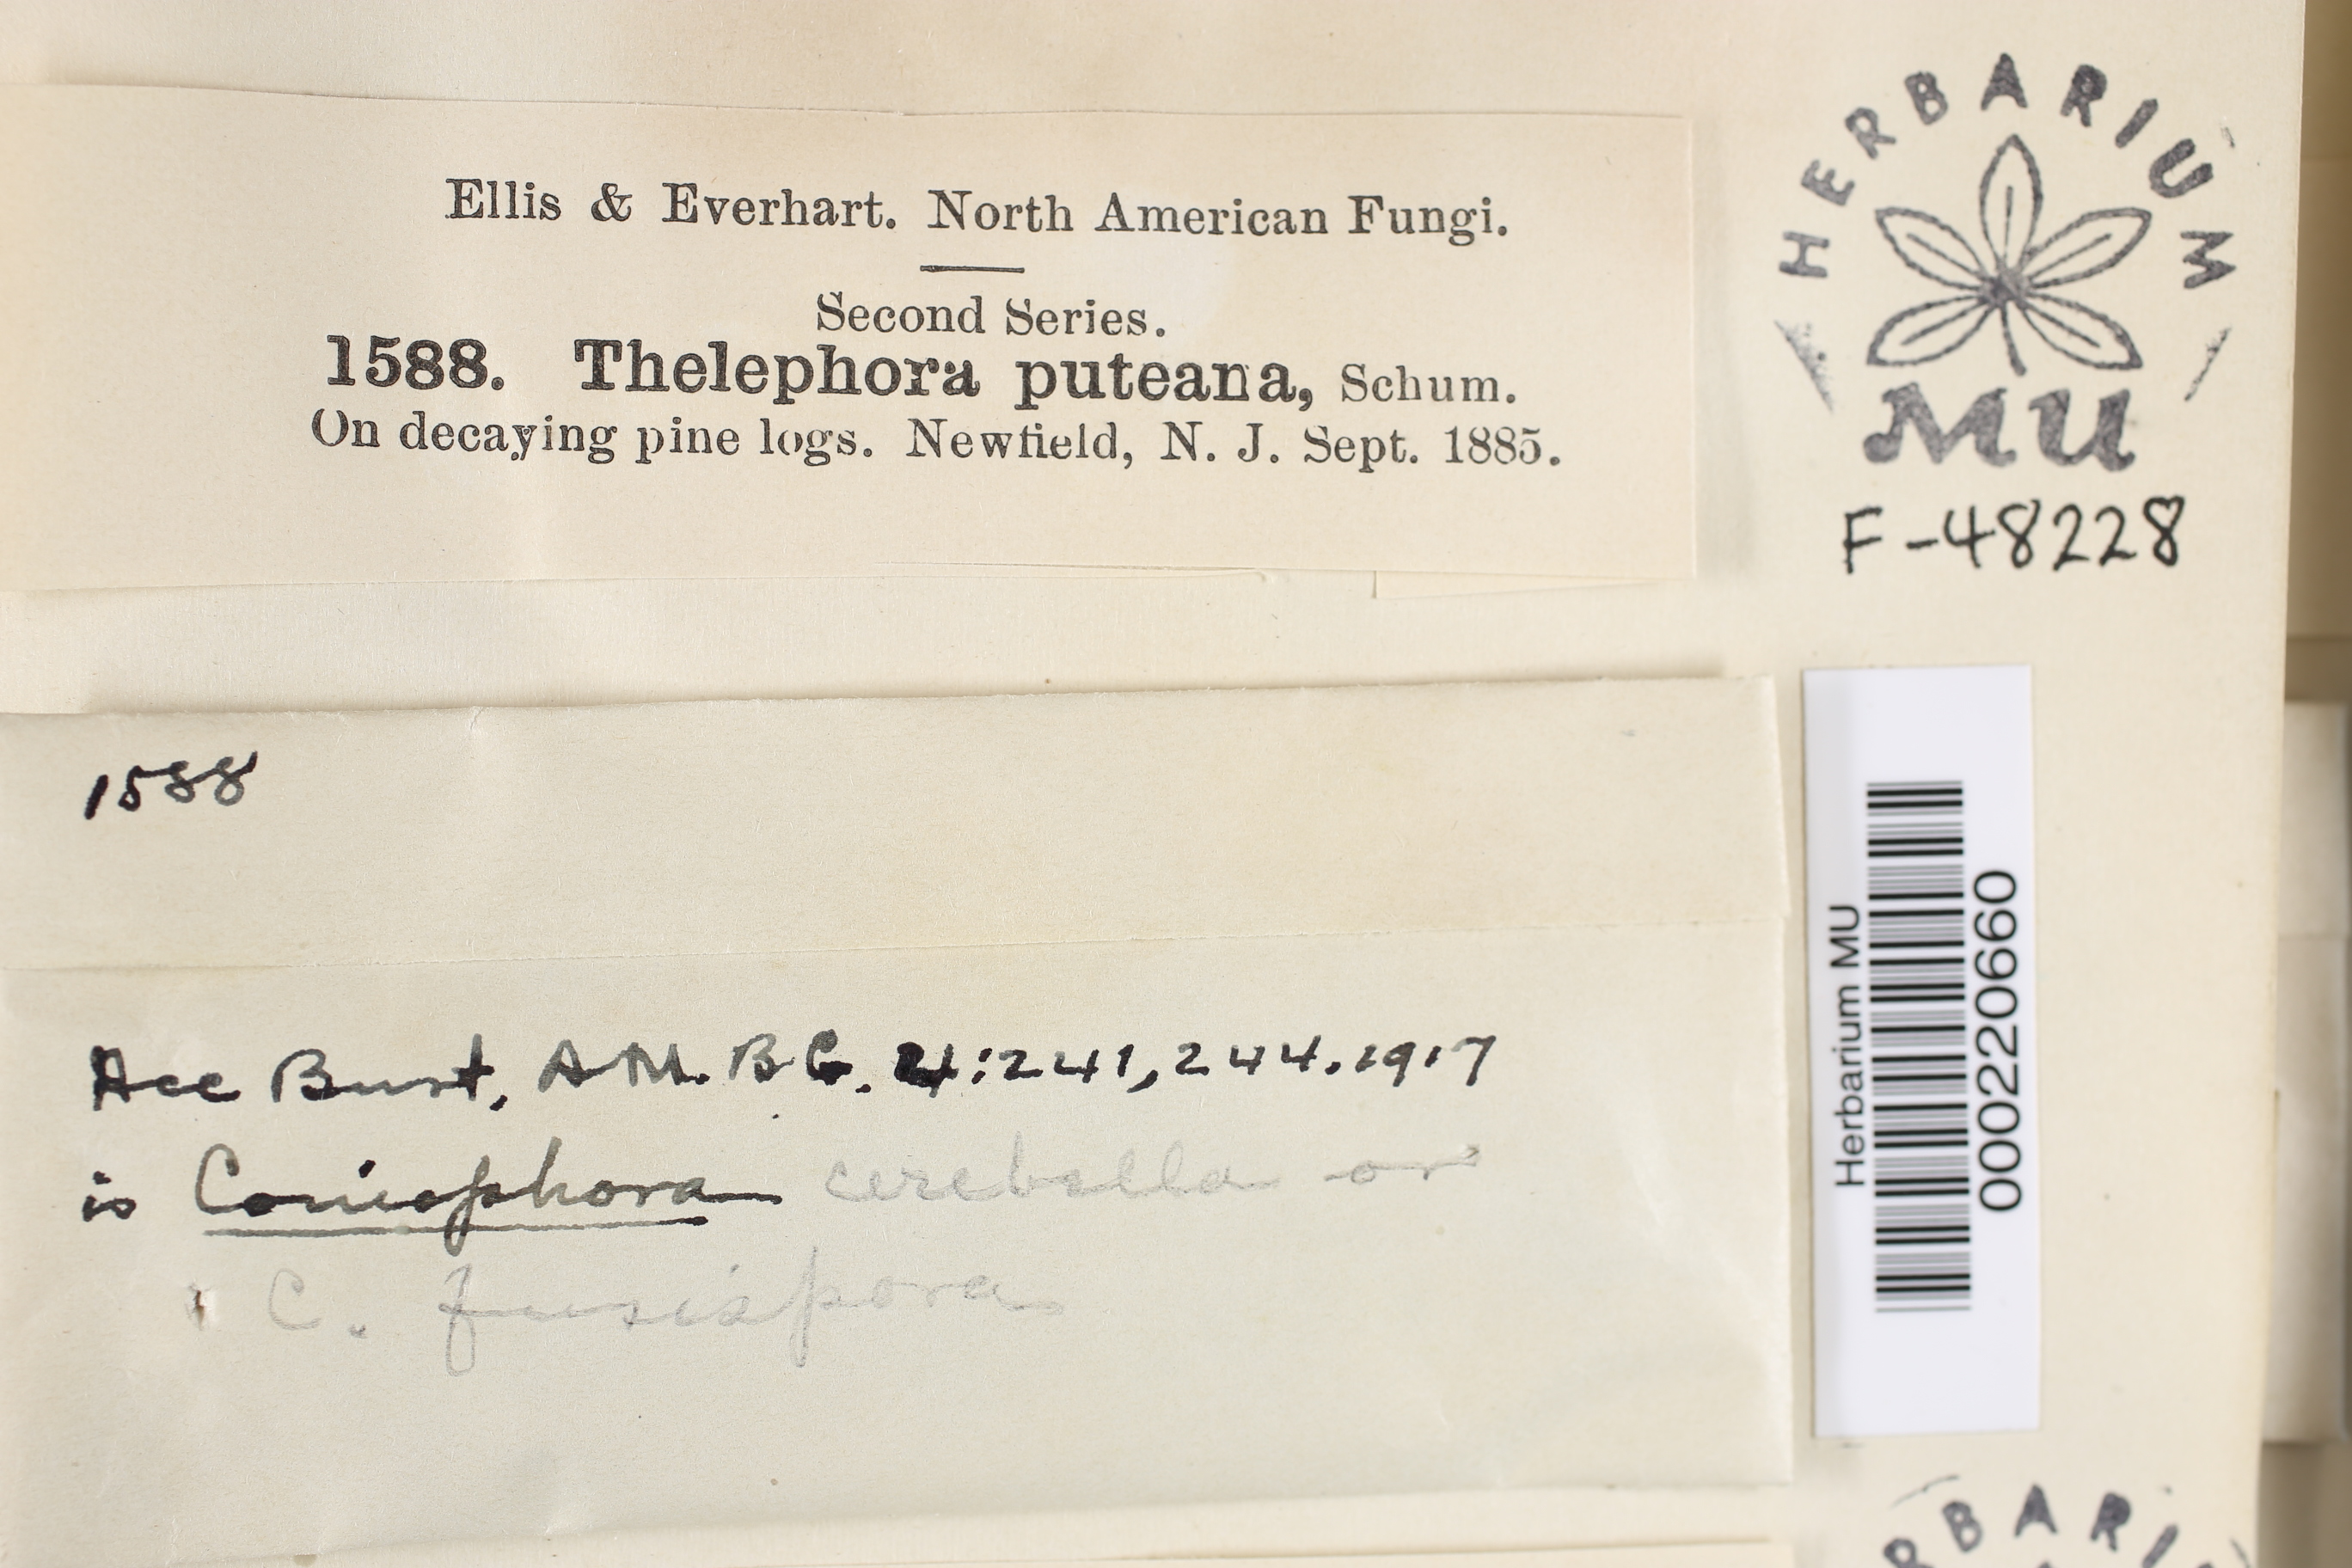 Ellis & Everhart. North American Fungi.
Second Series.
1588. Thelephora puteana, Schum.
On decaying pine logs. Newfield, N. J. Sept. 1885.
HERBARIUM
MU
F-48228
1588
Acc Burt, A M. B G. 4:241, 244. 1917
is Coniophora cerebella or
C. fusispora
Herbarium MU
000220660
RBARI